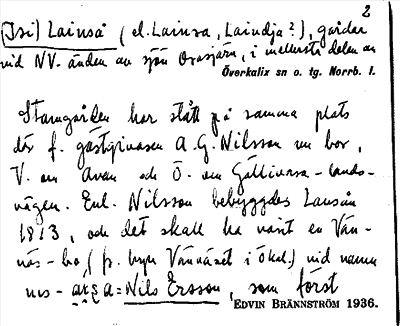 2
(Isi) Lainså (el. Lainsa, Laindja?), gårdar
vid NV. änden av sjön Orasjärv, i mellersta delen av
Överkalix sn o. tg. Norrb. l.
Stamgården har stått på samma plats
där f. gästgivaren A. G. Nilsson nu bor,
V. om Åvan och Ö. om Gällivara-lands-
vägen. Enl. Nilsson bebyggdes Lansån
1813, och det skall ha varit en Vän-
näs-bo, (fr. byn Vännäset i Ökal.) vid namn
Nils Ersson, som först
EDVIN BRÄNNSTRÖM 1936.